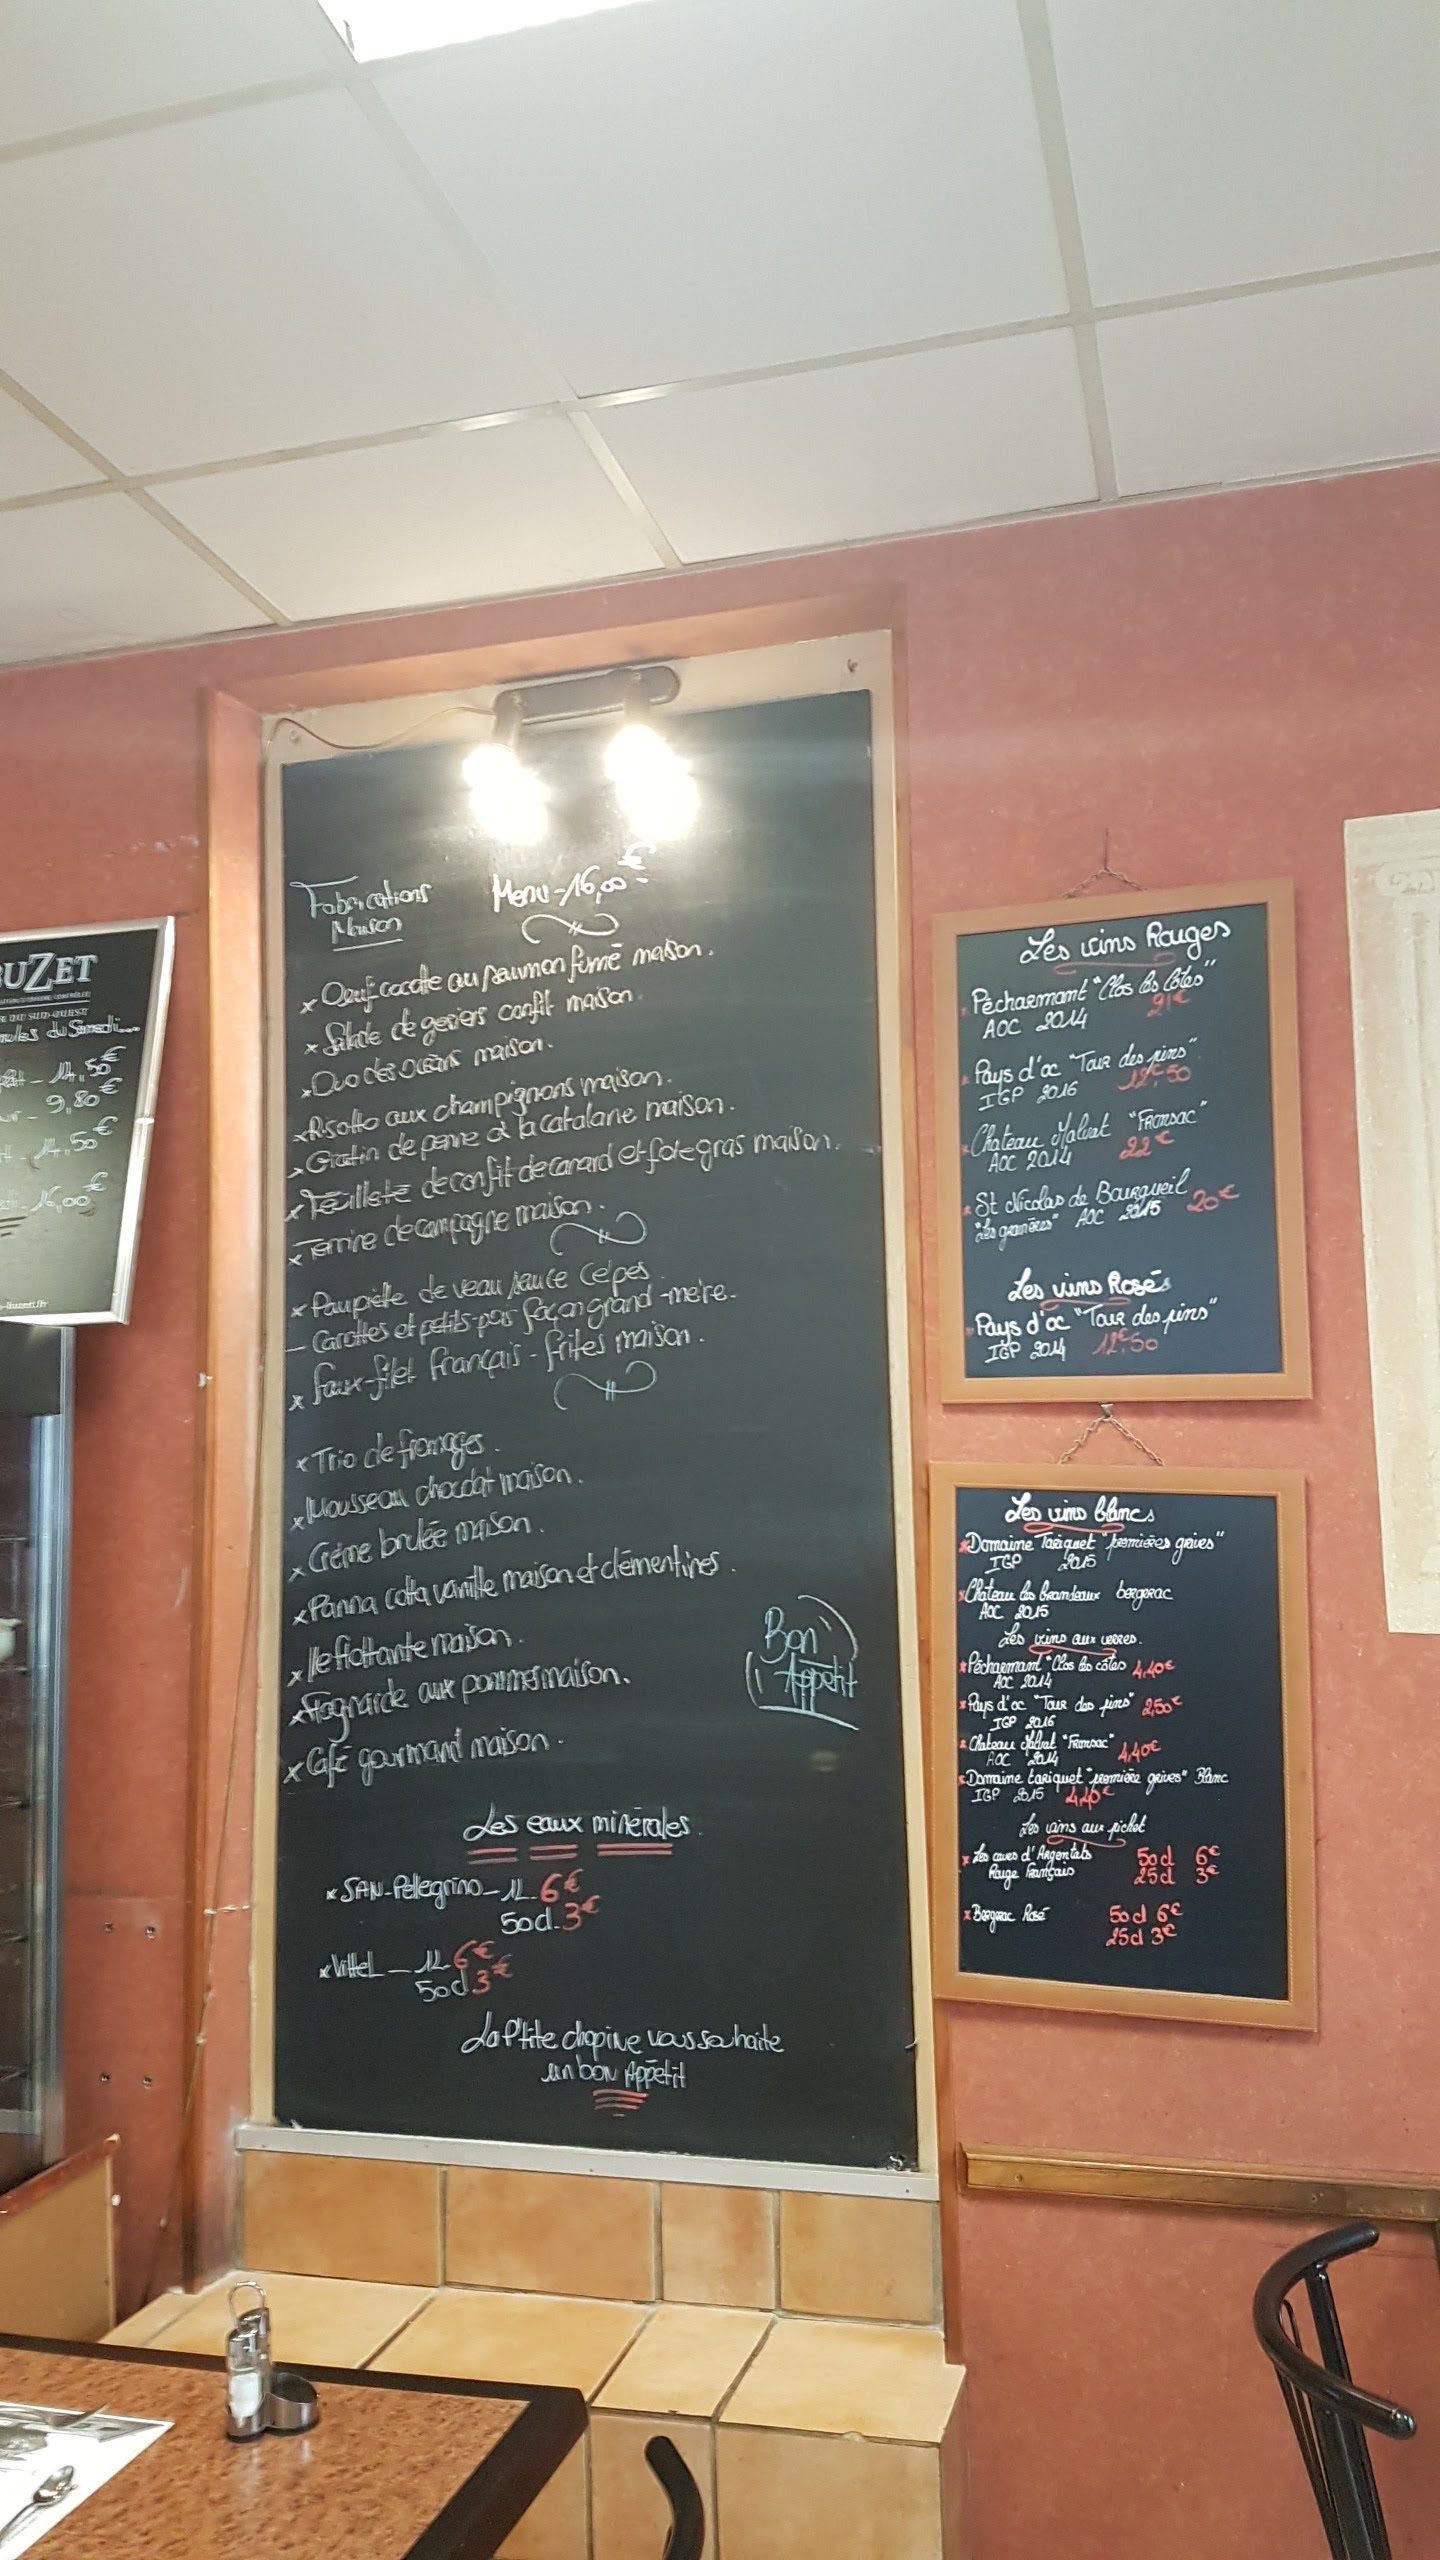 BUZET
SUD-OUEST
du Samedi...
14,50€
9,80€
14,50€
16,00€
Fabrications
Maison
Menu-16,00€
x Oeuf cocotte au saumon fumé maison.
x Salade de gesiers confit maison.
x Duo des océans maison.
x Risotto aux champignons maison.
x Gratin de penne à la catalane maison.
x Feuilleté de confit de canard et foie gras maison.
x Terrine de campagne maison.
x Paupiette de veau sauce Cèpes
- Carottes et petits-pois façon grand-mère.
x Faux-filet Français-frites maison.
x Trio de fromages.
x Mousseau chocolat maison.
x Crème brulée maison.
x Panna cotta vanille maison et clémentines.
x Ile flottante maison.
x Flognarde aux pommes maison.
x Café gourmand maison.
Bon
Appétit
Les eaux minérales.
x SAN-Pellegrino-1L 6€
50cl.3€
x Vittel-1L 6€
50cl 3€
La P'tite chopine vous souhaite
un bon Appétit
Les vins Rouges
x Pécharmant "Clos les Côtes"
AOC 2014 21€
x Pays d'oc "Tour des pins"
IGP 2016 12€50
x Chateau Malvat "Fronsac"
AOC 2014 22€
x St Nicolas de Bourgueil 20€
AOC 2015
Les vins Rosés
x Pays d'oc "Tour des pins"
IGP 2014 12€50
Les vins blancs
x Domaine Tariquet "premières grives"
IGP 2015
x Chateau les Brandeaux bergerac
AOC 2015
Les vins aux verres.
x Pécharmant "Clos les côtes 4,40€
AOC 2014
x Pays d'oc "Tour des pins" 2,50€
IGP 2016
x Chateau Malvat "Fronsac" 4,40€
AOC 2014
x Domaine tariquet "première grives" Blanc
IGP 2015 4,40€
Les vins aux pichet
x Les caves d'Argentats 50cl 6€
Rouge Français 25cl 3€
x Bergerac Rosé 50cl 6€
25cl 3€